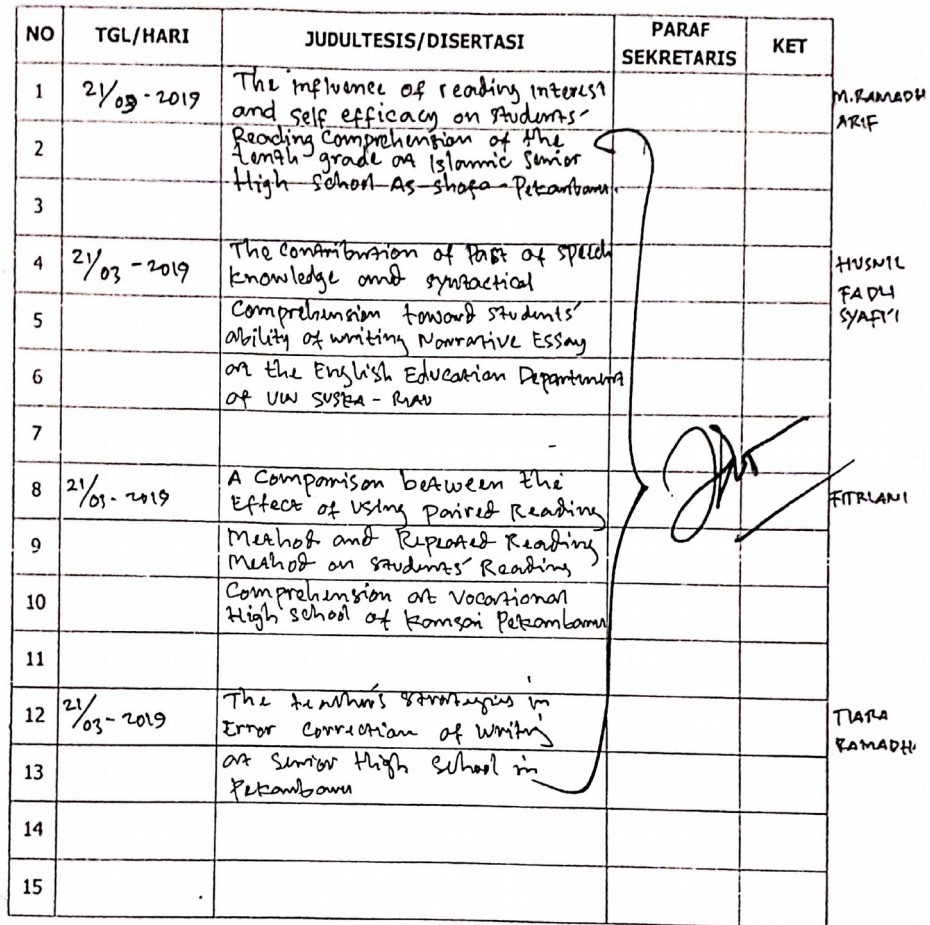 NO TGL/HARI JUDULTESIS/DISERTASI PARAF SEKRETARIS KET
1 21/03-2019 The influence of reading interest M.RAMADH
and self efficacy on students' ARIF
2 Reading Comprehension of the
tenth grade at Islamic Senior
High School As-shofa-Pekanbaru.
3
4 21/03-2019 The contribution of Part of speech HUSNIL
knowledge and syntactical FADLI
5 Comprehension toward students' SYAFI'I
ability of writing Narrative Essay
6 at the English Education Department
of UIN SUSKA - RIAU
7
8 21/03-2019 A Comparison between the FITRIANI
Effect of Using Paired Reading
9 Method and Repeated Reading
Method on students' Reading
10 Comprehension at Vocational
High School of Pekanbaru
11
12 21/03-2019 The teacher's strategies in TIARA
Error Correction of Writing RAMADH
13 at Senior High School in
Pekanbaru
14
15